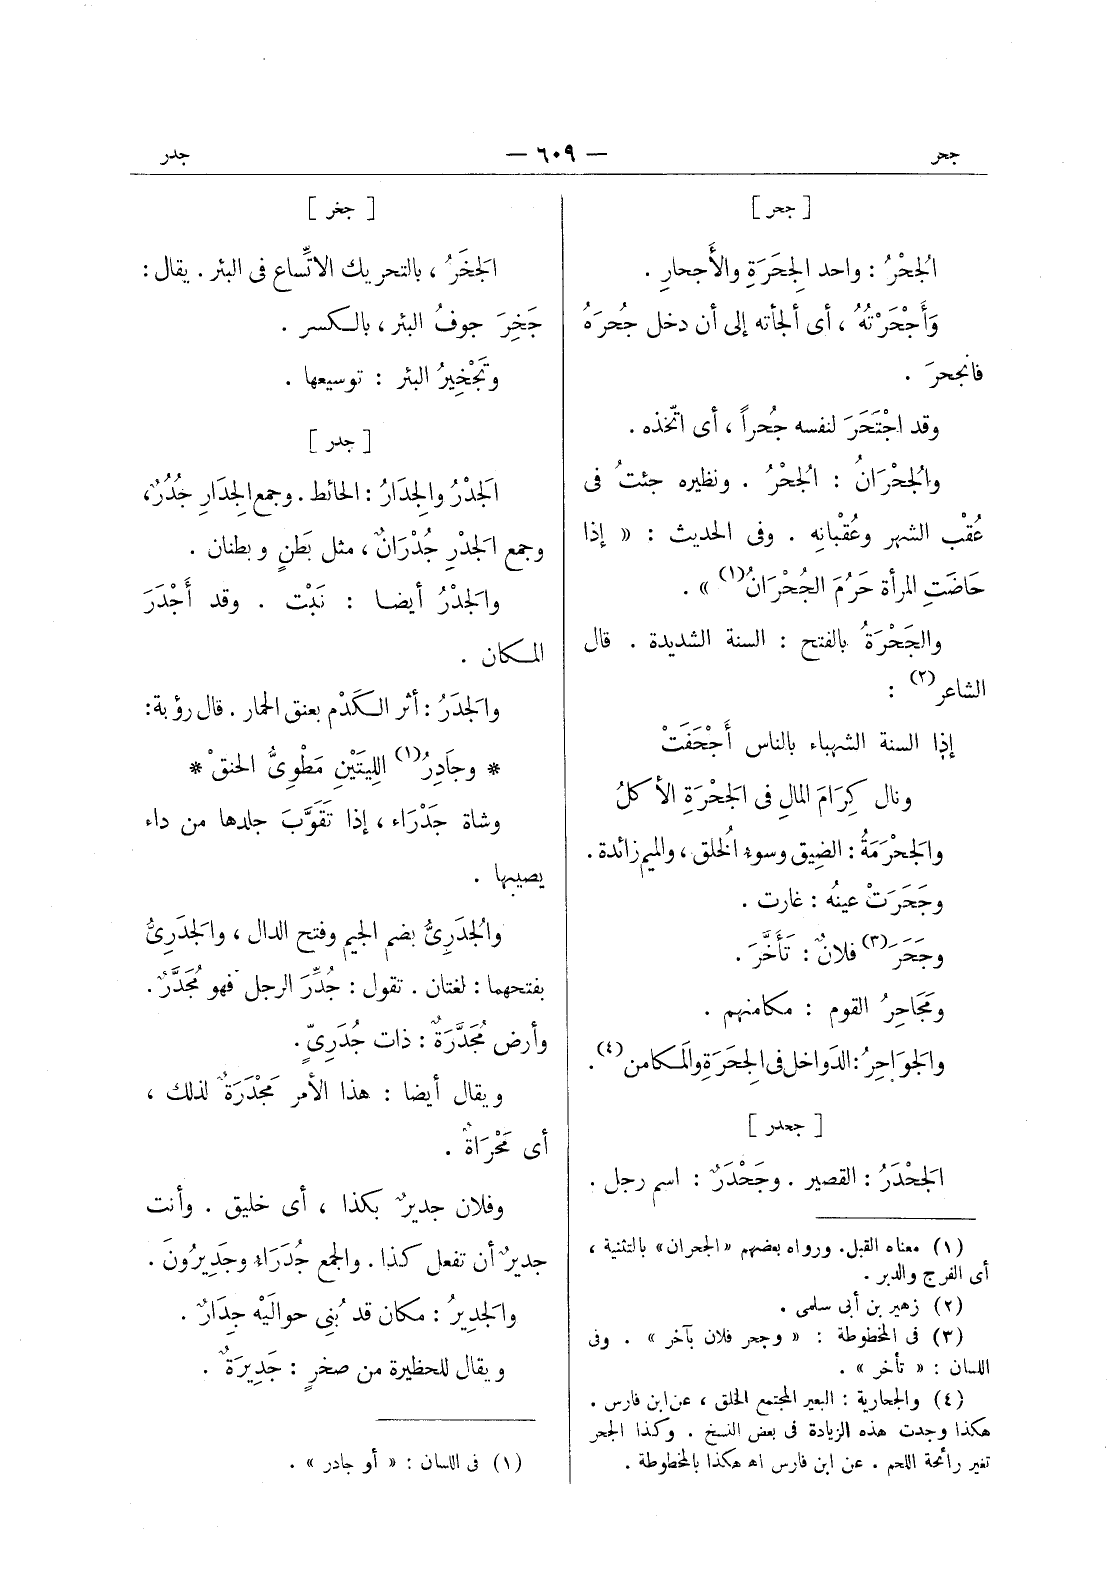 جحر — ٦٠٩ — جدر
[ جحر ]
الجُحْرُ : واحد الجِحَرَةِ والأَجحارِ .
وَأَجْحَرْتُهُ ، أى ألجأته إلى أن دخل جُحرَهُ
فانجحرَ .
وقد اجْتَحَرَ لنفسه جُحراً ، أى اتّخذه .
والجُحْرَانُ : الجُحْرُ . ونظيره جئتُ فى
عُقْب الشهر وعُقْبانِه . وفى الحديث : « إذا
حَاضَتِ المرأة حَرُمَ الجُحْرَانُ(١) » .
والجَحْرَةُ بالفتح : السنة الشديدة . قال
الشاعر(٢) :
إذا السنة الشهباء بالناس أَجْحَفَتْ
ونال كِرَامَ المال فى الجَحْرَةِ الأكلُ
والجَحْرَمَةُ : الضيق وسوء الخُلق ، والميم زائدة .
وجَحَرَتْ عينُه : غارت .
وجَحَرَ(٣) فلانٌ : تَأَخَّرَ .
ومَجَاحِرُ القوم : مكامنهم .
والجوَاحِرُ : الدواخل فى الجِحَرَةِ والمَكامن(٤) .
[ جحدر ]
الجَحْدَرُ : القصير . وجَحْدَرٌ : اسم رجل .
(١) معناه القبل . ورواه بعضهم « الجحران » بالتثنية ،
أى الفرج والدبر .
(٢) زهير بن أبى سلمى .
(٣) فى المخطوطة : « وجحر فلان بآخر » . وفى
اللسان : « تأخر » .
(٤) والجحارية : البعير المجتمع الخلق ، عن ابن فارس .
هكذا وجدت هذه الزيادة فى بعض النسخ . وكذا الجحر
تغير رأئحة اللحم . عن ابن فارس اھ هكذا بالمخطوطة .
[ جخر ]
الجَخَرُ ، بالتحريك الاتِّساع فى البئر . يقال :
جَخِرَ جوفُ البئر ، بالكسر .
وتَجْخِيرُ البئر : توسيعها .
[ جدر ]
الجَدْرُ والجِدَارُ : الحائط . وجمع الجِدَارِ جُدُرٌ ،
وجمع الجَدْرِ جُدْرَانٌ ، مثل بَطْنٍ وبطنان .
والجَدْرُ أيضا : نَبْت . وقد أَجْدَرَ
المكان .
والجَدَرُ : أثر الكَدْم بعنق الحمار . قال رؤبة :
* وجَادِرُ(١) اللِيتَيْنِ مَطْوِىُّ الحنقْ *
وشاة جَدْرَاء ، إذا تَقَوَّبَ جلدها من داء
يصيبها .
والجُدَرِىُّ بضم الجيم وفتح الدال ، والجَدَرِىُّ
بفتحهما : لغتان . تقول : جُدِّرَ الرجل فهو مُجَدَّرٌ .
وأرض مُجَدَّرَةٌ : ذات جُدَرِىٍّ .
ويقال أيضا : هذا الأمر مَجْدَرَةٌ لذلك ،
أى مَحْرَاةٌ .
وفلان جديرٌ بكذا ، أى خليق . وأنت
جديرٌ أن تفعل كذا . والجمع جُدَرَاءُ وجَدِيرُونَ .
والجَدِيرُ : مكان قد بُنِى حوالَيْه جِدَارٌ .
ويقال للحظيرة من صخرٍ : جَدِيرَةٌ .
(١) فى اللسان : « أو جادر » .